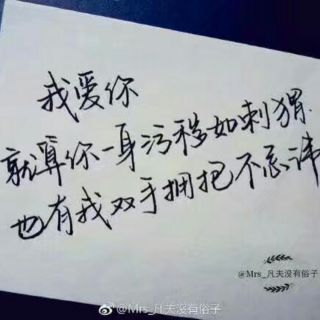 我爱你
就算你一身污秽如刺猬
也有我双手拥抱不忌讳
@Mrs_凡夫没有俗子
@Mrs_凡夫没有俗子